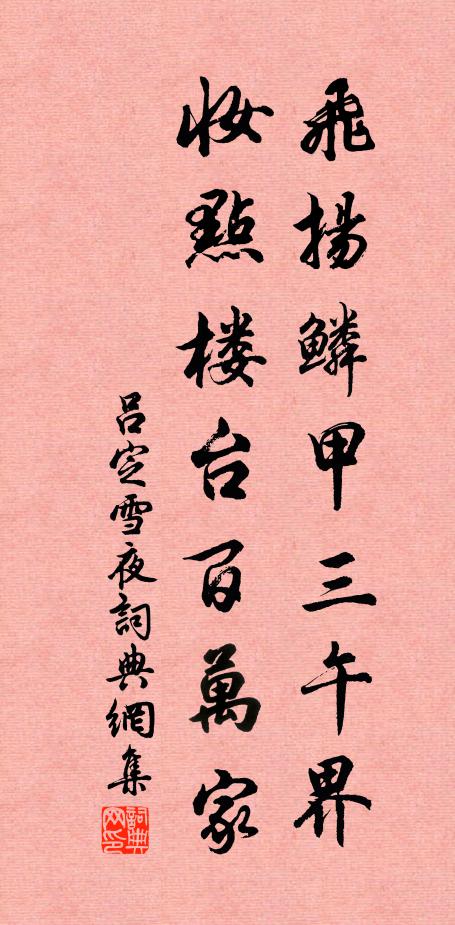 飛揚鱗甲三千界
妝點楼台百萬家
吕定雪夜詞典網集
詞典
网印